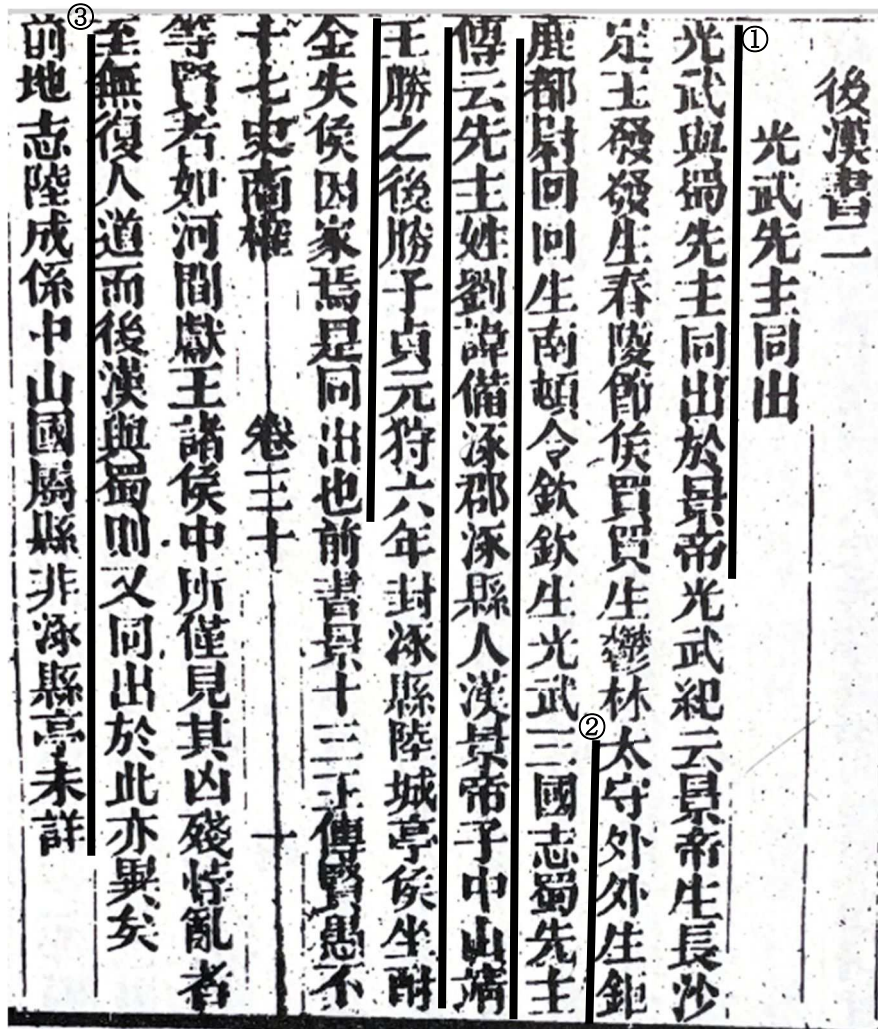 後漢書二
光武先主同出
①
光武與蜀先主同出於景帝光武紀云景帝生長沙
定王發發生舂陵節侯買買生鬱林太守外外生鉅
②
鹿都尉回回生南頓令欽欽生光武三國志蜀先主
傳云先主姓劉諱備涿郡涿縣人漢景帝子中山靖
王勝之後勝子貞元狩六年封涿縣陸城亭侯坐酎
金失侯因家焉是同出也前書景十三王傳賢愚不
十七史商榷 卷三十 一
等賢者如河間獻王諸侯中所僅見其凶殘悖亂者
③
至無復人道而後漢與蜀則又同出於此亦異矣
前地志陸成係中山國屬縣非涿縣亭未詳